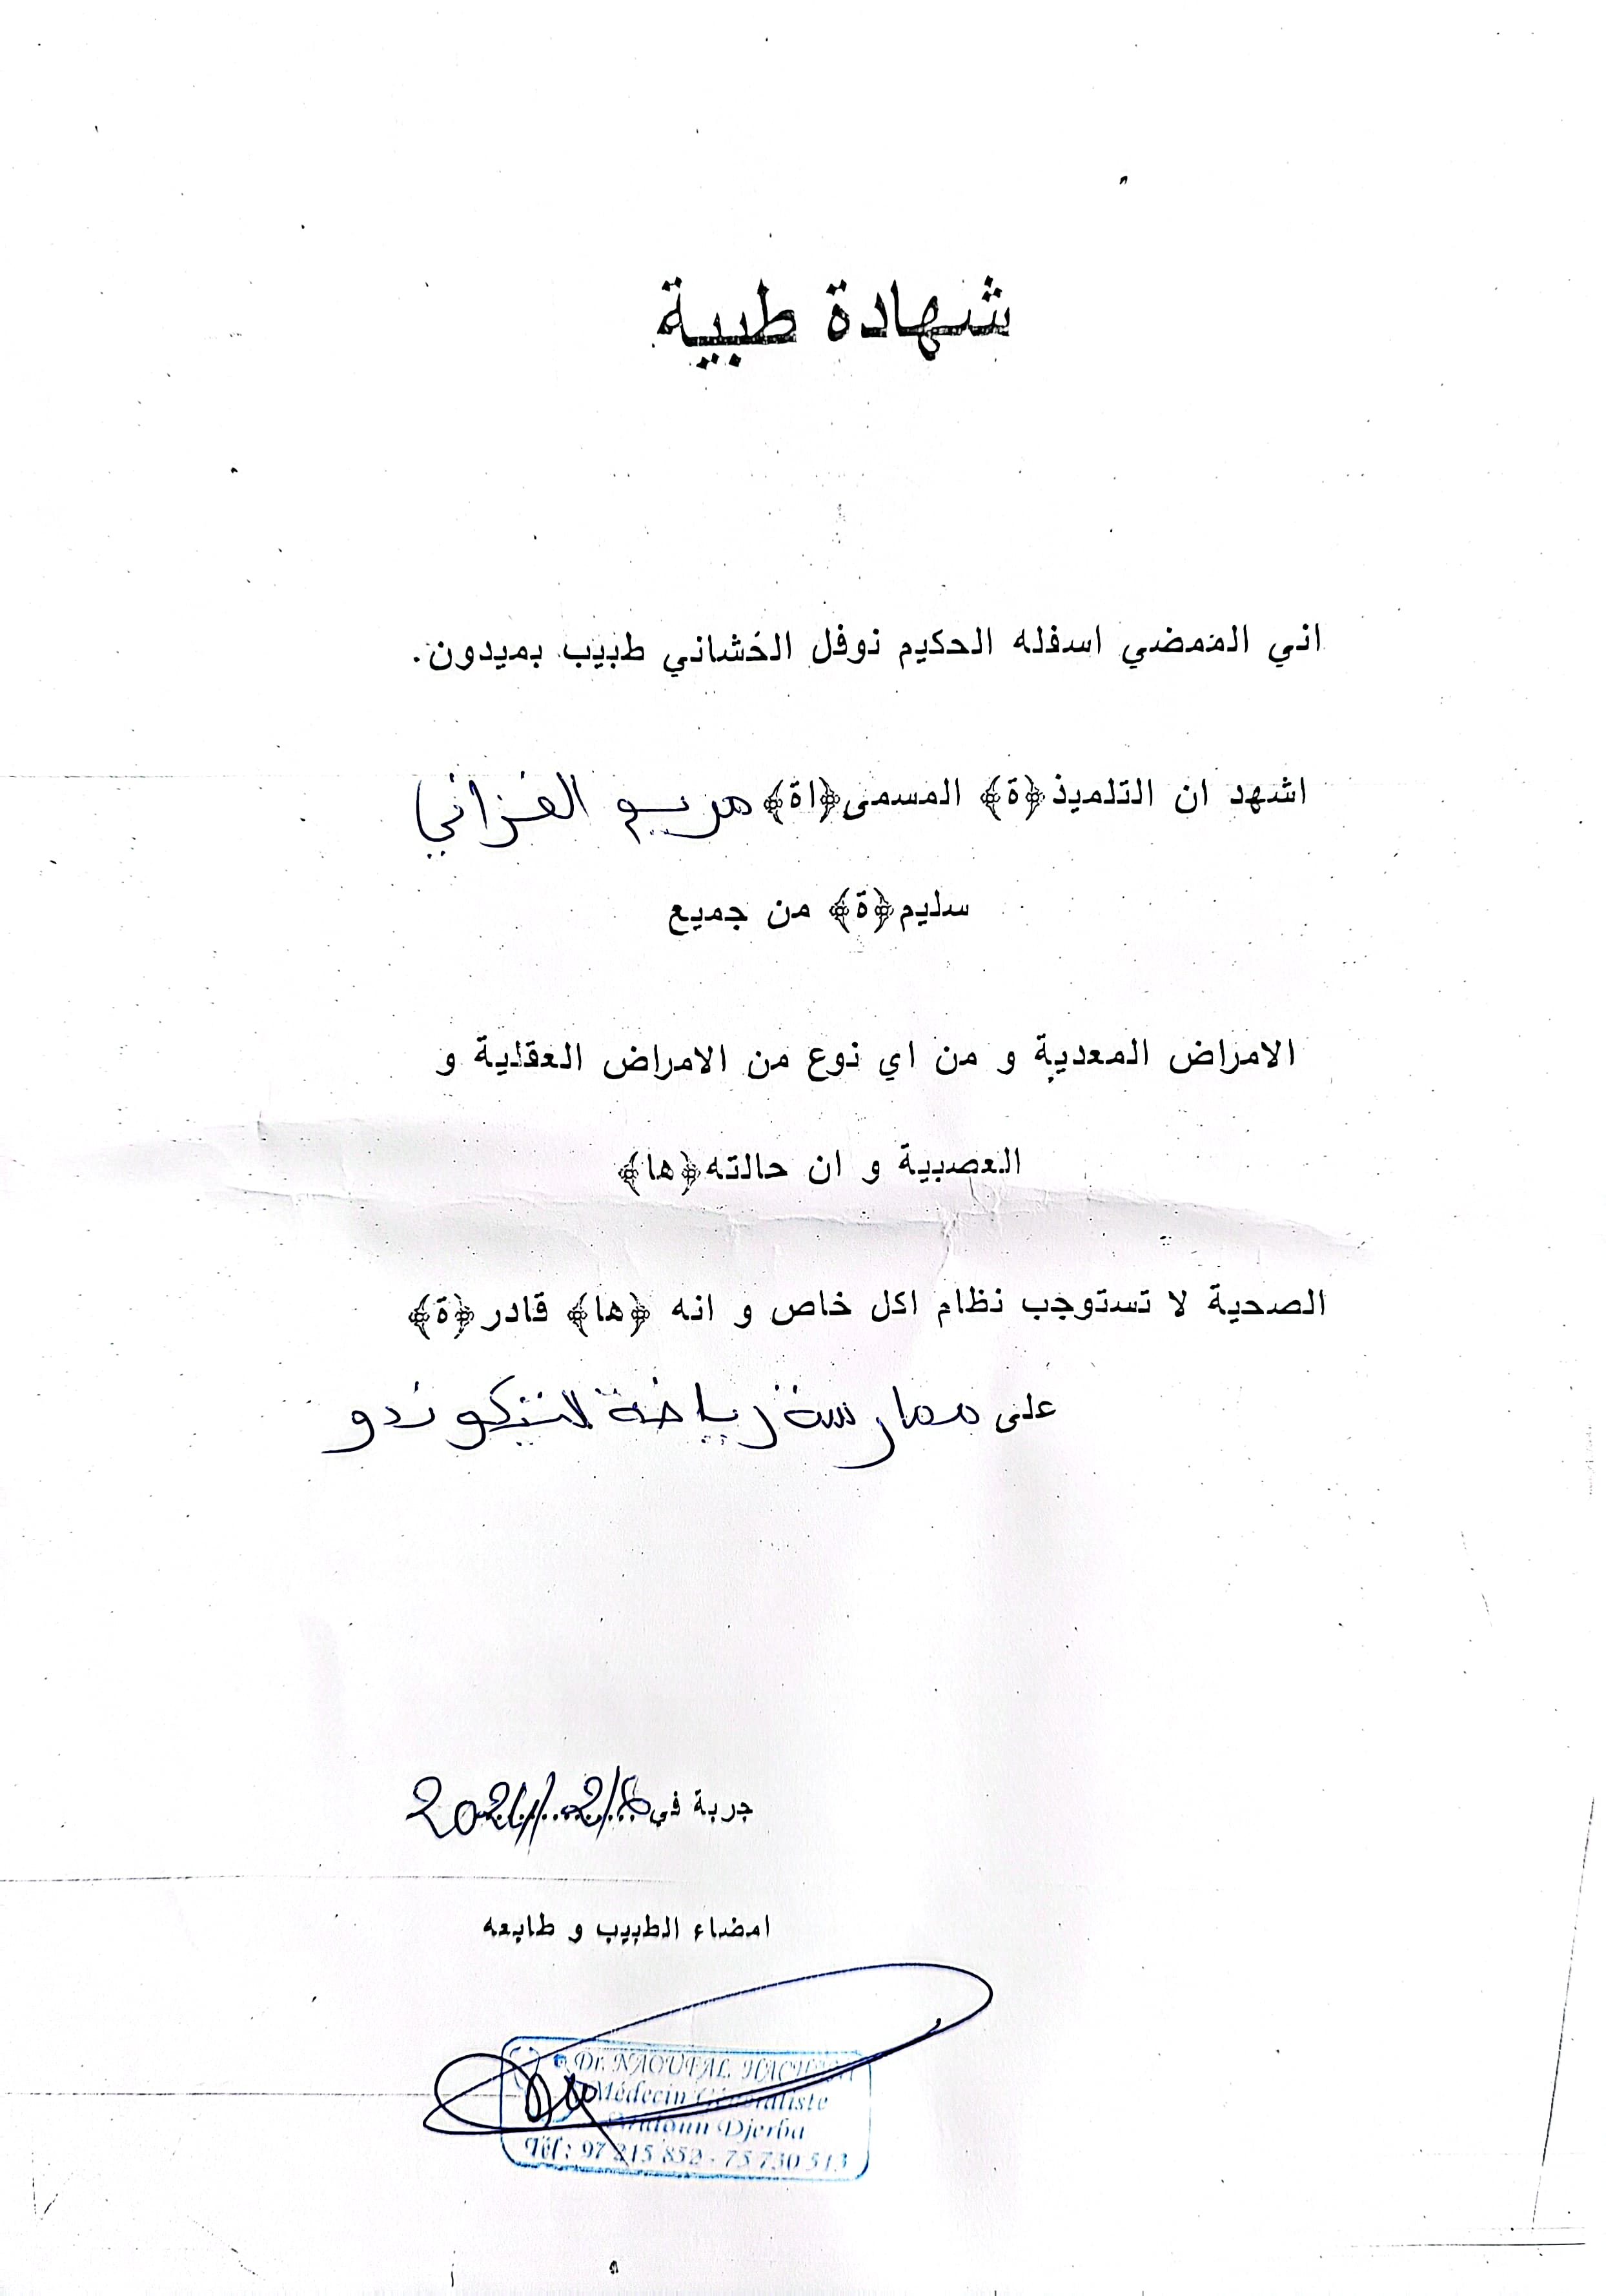 شهادة طبية
اني الممضي اسفله الحكيم نوفل الخشاني طبيب بميدون.
اشهد ان التلميذ﴿ة﴾ المسمى﴿اة﴾ مريم الغزاني
سليم﴿ة﴾ من جميع
الامراض المعدية و من اي نوع من الامراض العقلية و
العصبية و ان حالته﴿ها﴾
الصحية لا تستوجب نظام اكل خاص و انه ﴿ها﴾ قادر﴿ة﴾
على ممارسة رياضة
جربة في
امضاء الطبيب و طابعه
Dr. NAOUFAL
Médecin Généraliste
Djerba
Tél : 97 215 852 - 75 730 513